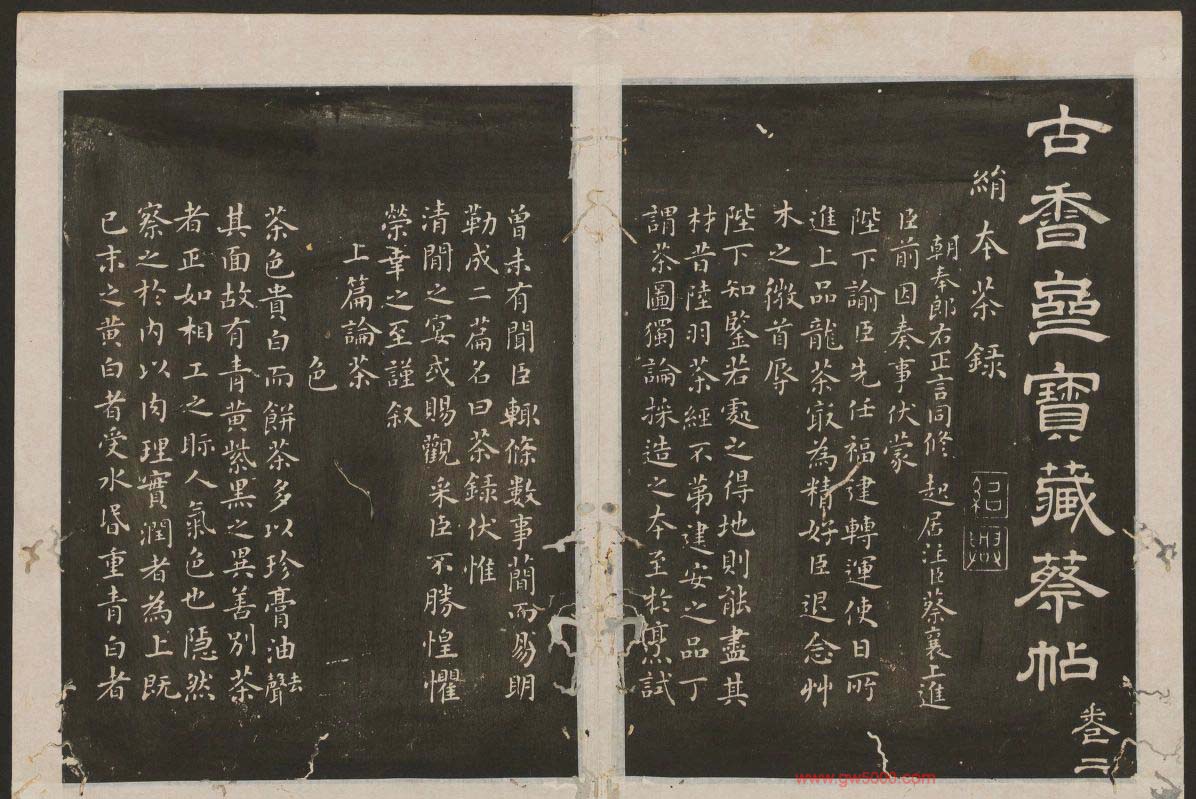 古香齋寶藏蔡帖
卷二
絹本茶錄
紹興
朝奉郎右正言同修起居注臣蔡襄上進
臣前因奏事伏蒙
陛下諭臣先任福建轉運使日所
進上品龍茶㝡為精好臣退念艸
木之微首辱
陛下知鑒若處之得地則能盡其
材昔陸羽茶經不第建安之品丁
謂茶圖獨論採造之本至於烹試
曾未有聞臣輒條數事簡而易明
勒成二篇名曰茶錄伏惟
清閒之宴或賜觀采臣不勝惶懼
榮幸之至謹叙
上篇論茶
色
茶色貴白而餅茶多以珍膏油去聲
其面故有青黃紫黑之異善別茶
者正如相工之眎人氣色也隱然
察之於內以肉理實潤者為上既
已末之黃白者受水昏重青白者
www.gw5000.com